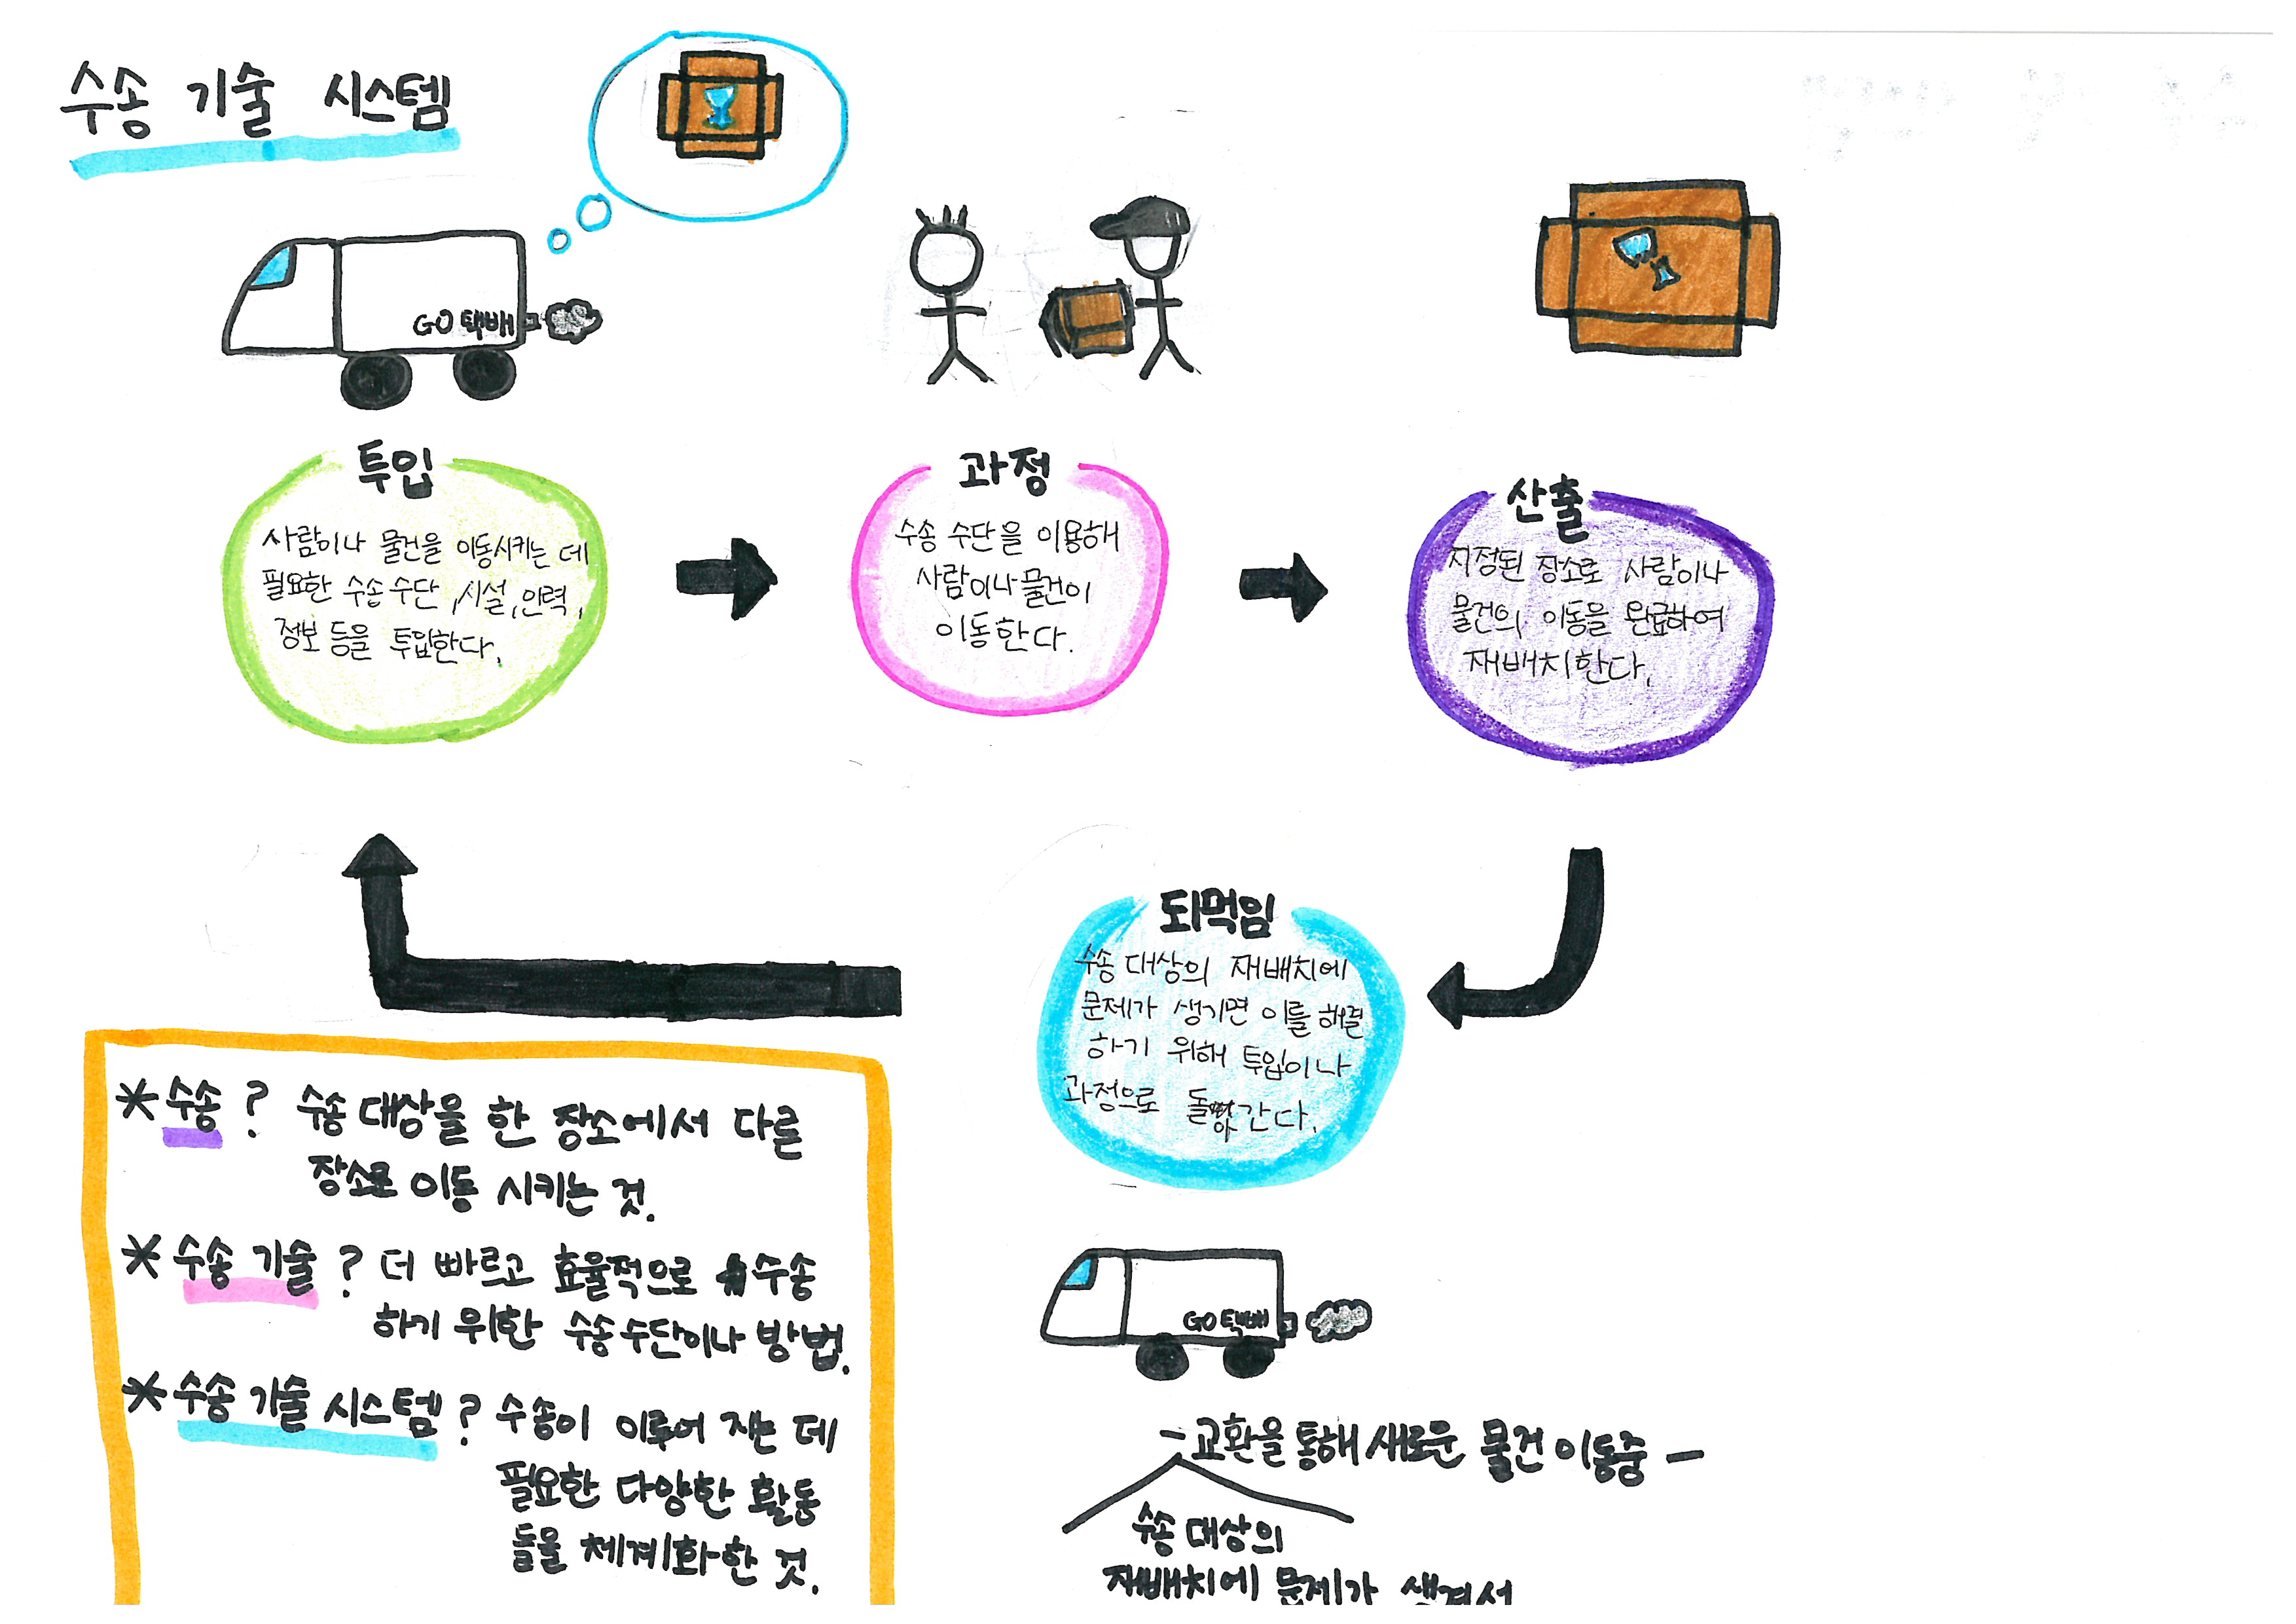 수송 기술 시스템
GO 택배
투입
사람이나 물건을 이동시키는 데
필요한 수송 수단, 시설, 인력,
정보 등을 투입한다.
과정
수송 수단을 이용해
사람이나 물건이
이동한다.
산출
지정된 장소로 사람이나
물건의 이동을 완료하여
재배치한다.
되먹임
수송 대상의 재배치에
문제가 생기면 이를 해결
하기 위해 투입이나
과정으로 돌아간다.
*수송? 수송 대상을 한 장소에서 다른
장소로 이동 시키는 것.
*수송 기술? 더 빠르고 효율적으로 수송
하기 위한 수송 수단이나 방법.
*수송 기술 시스템? 수송이 이루어 지는 데
필요한 다양한 활동
들을 체계화한 것.
GO 택배
-교환을 통해 새로운 물건 이동중-
수송 대상의
재배치에 문제가 생겨서